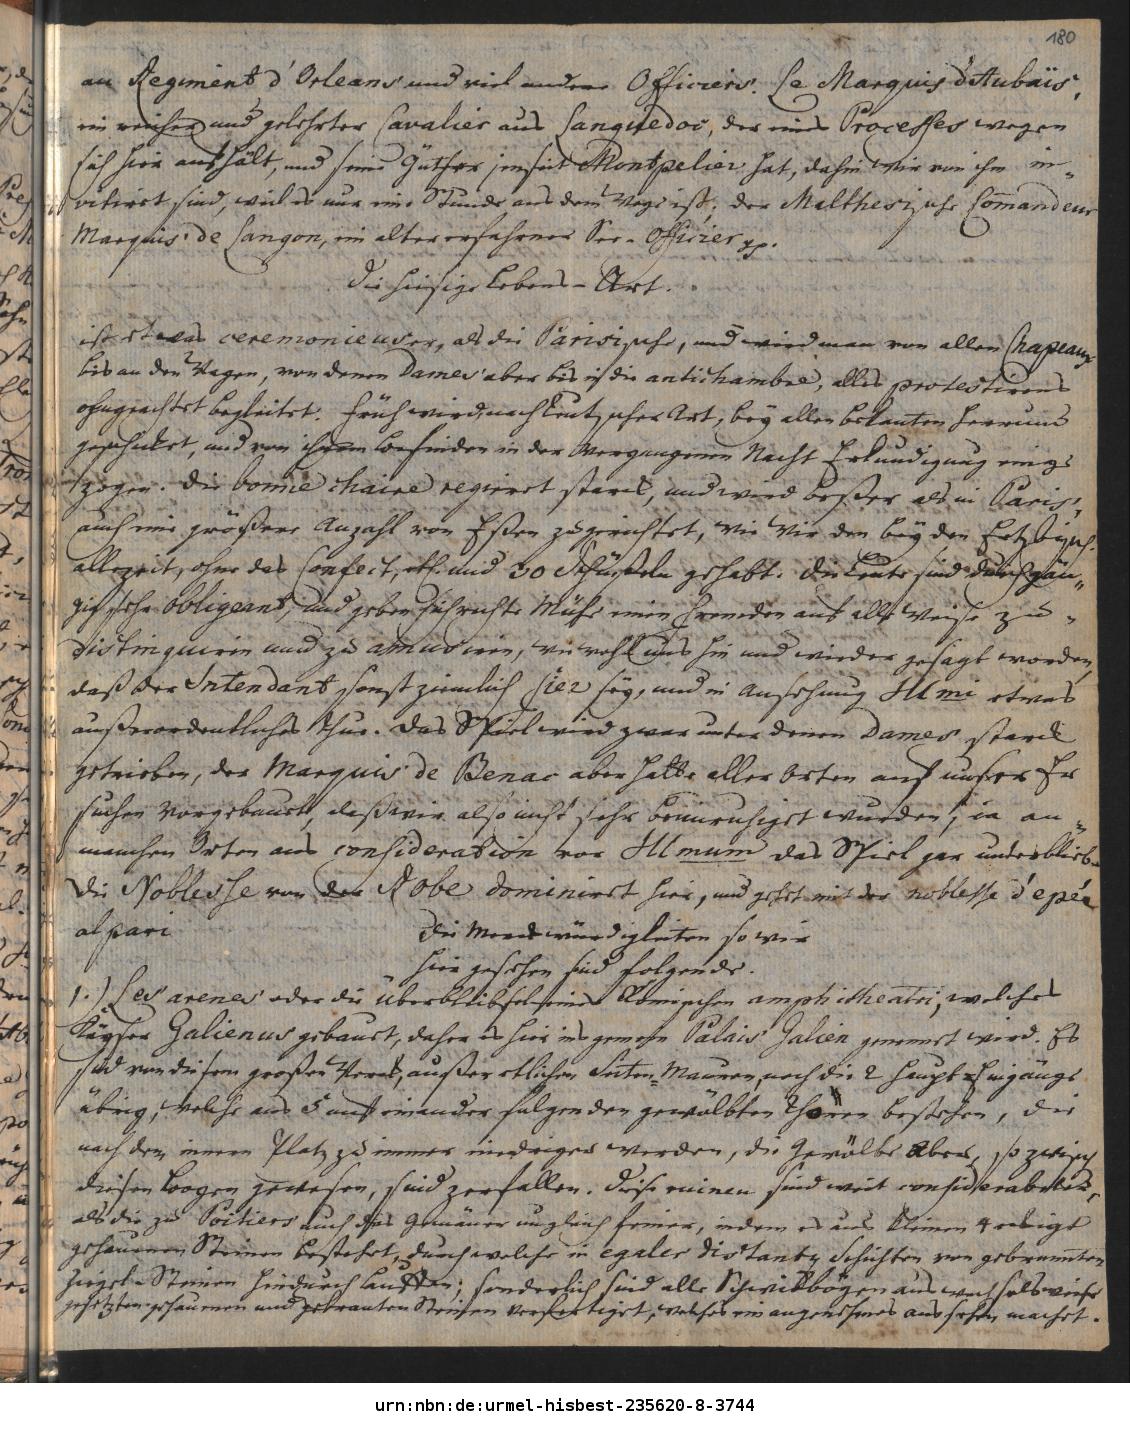 180
am Regiment d'Orleans und viel andere Officiers. Le Marquis d'Aubaïs,
ein reicher und gelehrter Cavalier aus Languedoc, der eines Processes wegen
sich hier aufhält, und seine Güther jenseit Montpelier hat, dahin wir von ihm in-
vitiret sind, weil es nur eine Stunde aus dem Wege ist; der Malthesische Comandeur
Marquis de Langon, ein alter erfahrner See-Officier pp.
Die hiesige Lebens-Art.
ist etwas ceremonieuser, als die Parisische, und wird man von allen Chapeaux
bis an den Wagen, von denen Dames aber bis in die antichambre, alles protestirens
ohngeachtet begleitet. Früh wird nach Teutscher Art, bey allen bekanten herrum
geschicket, und von ihrem befinden in der vergangenen Nacht Erkundigung einge
zogen. Die bonne chaire regieret starck, und wird beßer als in Paris,
auch eine größere Anzahl von Eßen zugerichtet, wie wir den bey den Ertzbisch.
allezeit, ohne das Confect, etl. und 30 Schüßeln gehabt. Die Leute sind durchgän-
gig sehr obligeant, und geben sich rechte Mühe einen Fremden auf alle Weise zu
distinguiren und zu amusiren, wie wohl uns hin und wieder gesagt worden,
daß der Intendant sonst ziemlich fier sey, und in Ansehung Illmi etwas
außerordentliches thue. Das Spiel wird zwar unter denen Dames starck
getrieben, der Marquis de Benac aber hatte aller Orten auf unser Er
suchen vorgebauet, daß wir also nicht sehr beunruhiget wurden, ja an
manchen Orten aus consideration vor Illmum das Spiel gar unterblieb.
Die Noblesse von der Robe dominiret hier, und gehet mit der noblesse d'epée
al pari
Die Merckwürdigkeiten so wir
hier gesehen sind folgende.
1.) Les arenes oder die Überbleibsel eines Römischen amphitheatri, welches
Käyser Galienus gebauet, daher es hier ins gemein Palais Galien genennet wird. Es
sind von diesem großen Werck, außer etlichen Seiten-Mauren, noch die 2 Haupt-Eingänge
übrig, welche aus 5 auf einander folgenden gewölbten Thoren bestehen, die
nach dem innern Platz zu immer niedriger werden, die Gewölbe aber, so zwisch
diesen Bogen gewesen, sind zerfallen. Diese ruinen sind weit considerabeler,
als die zu Poitiers auch das Gemäuer ungleich feiner, indem es aus kleinen 4 eckigt
gehauenen Steinen bestehet, durch welche in egaler distantz Schichten von gebrannten
Ziegel-Steinen hindurch lauffen; sonderlich sind alle Schwibbögen aus wechselsweise
gesetzten gehauenen und gebranten Steinen verfertiget, welches ein angenehmes aussehen machet.
urn:nbn:de:urmel-hisbest-235620-8-3744